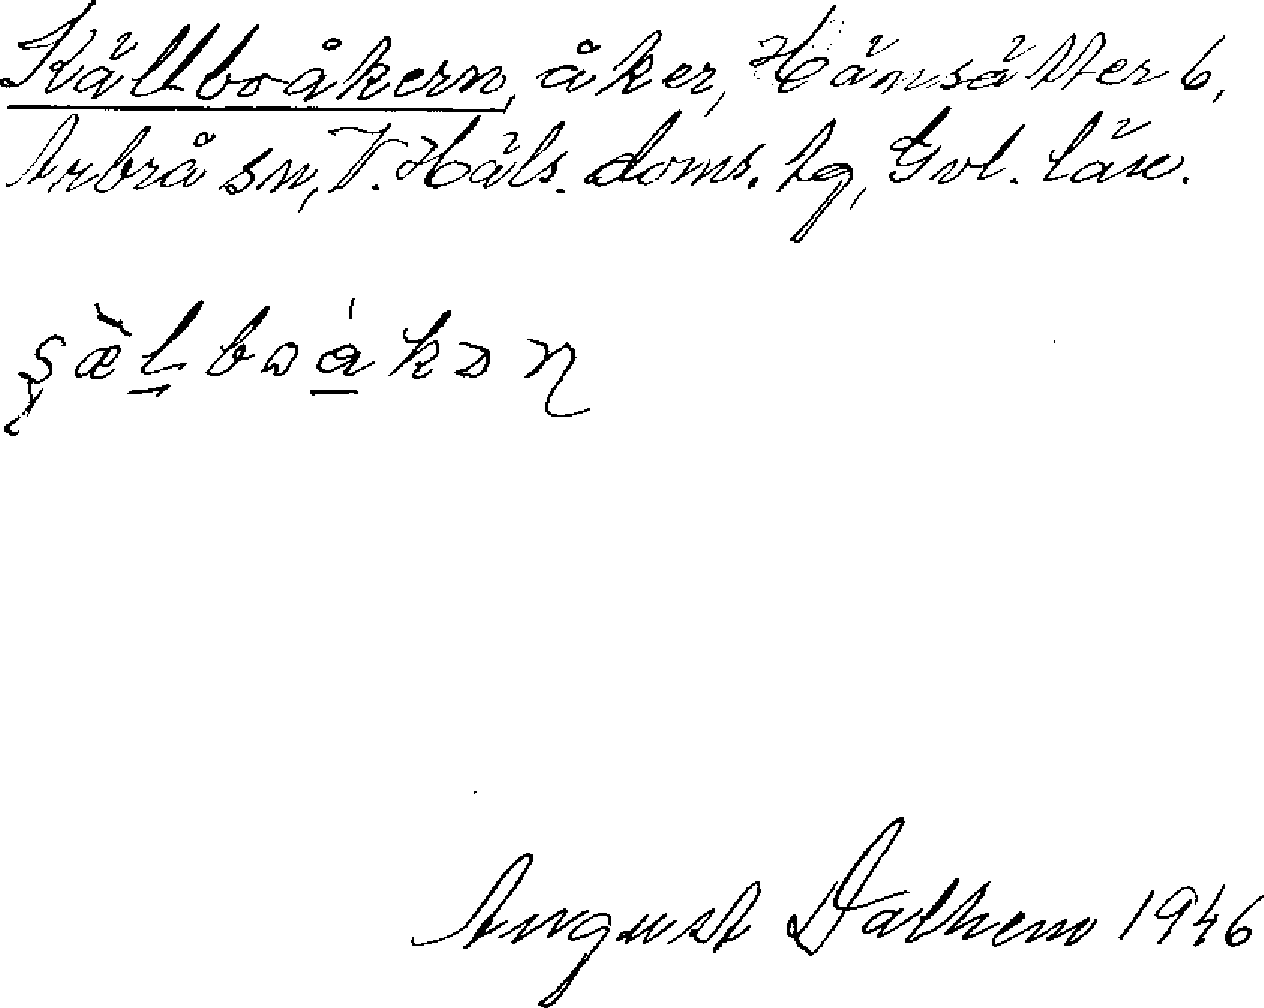 Källboåkern, åker, Hämsätter 6,
Arbrå sn, V. Häls. doms. tg, Gvl. län.
August Dalhem 1946